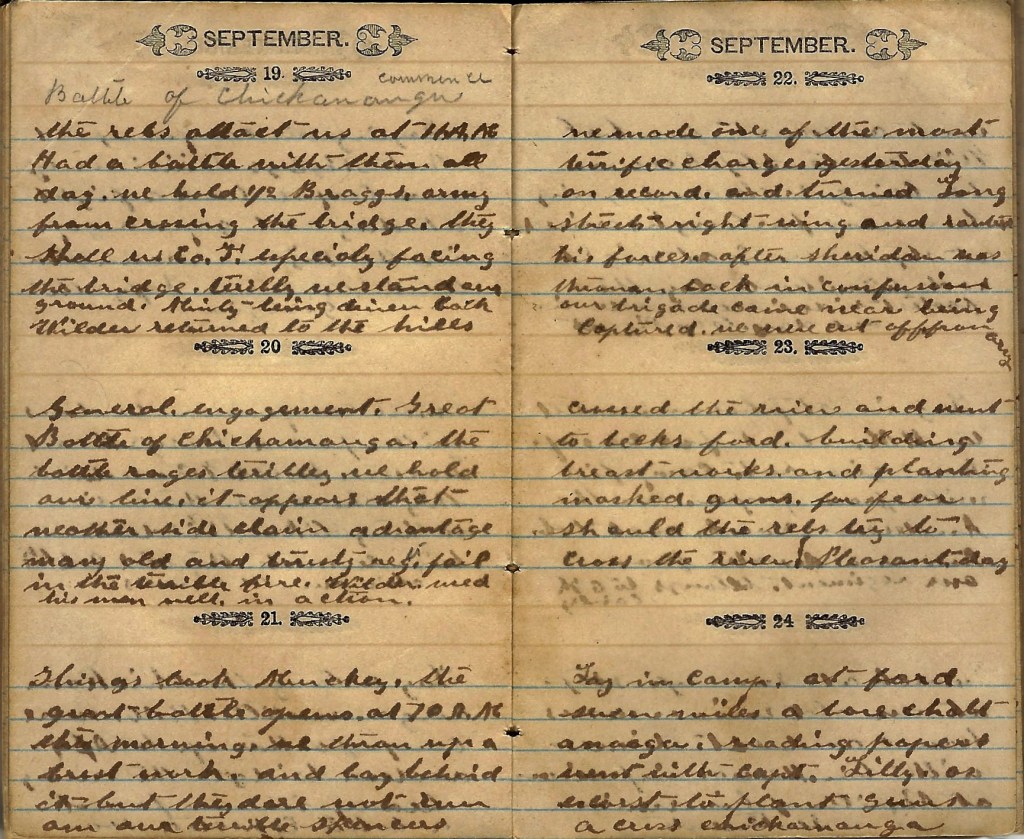 SEPTEMBER.
19.
commence
Battle of Chickamanga
the rebs attact us at A.M
Had a battle with them all
day. we hold 1/2 Braggs. army
from crosing the bridge. they
shell us Co. F. especialy facing
the bridge. teribly we stand our
ground. Minty being driven back
Wilder returned to the hills
20
General. engagement. Great
Battle of Chickamanga. the
battle rages teribley we hold
our line. it appears that
neather side claim advantage
many old and trusty regt fail
in the terrible fire. Wilder used
his men well. in action.
21.
Things look Muckey. the
great battle opens. at 10 A.M
this morning. we thron up a
brest work. and lay behind
it but they dare not run
on our terible Spencers
SEPTEMBER.
22.
we made one of the most
terrific charges yesterday
on record. and turned Long
streets right wing and routed
his forces. after sheridan was
thronan back in confusion
our brigade came near being
Captured. we were cut off from
army
23.
crosed the river and went
to beeks ford. building
breast works. and planting
masked guns. for fear
should the rebs try to
cross the river. Pleasant day
24
Lay in camp. at ford
seven miles a bove chatt
anooga. reading papers
went with Capt. Lilly as
escort to plant guns
a cross chickamanga